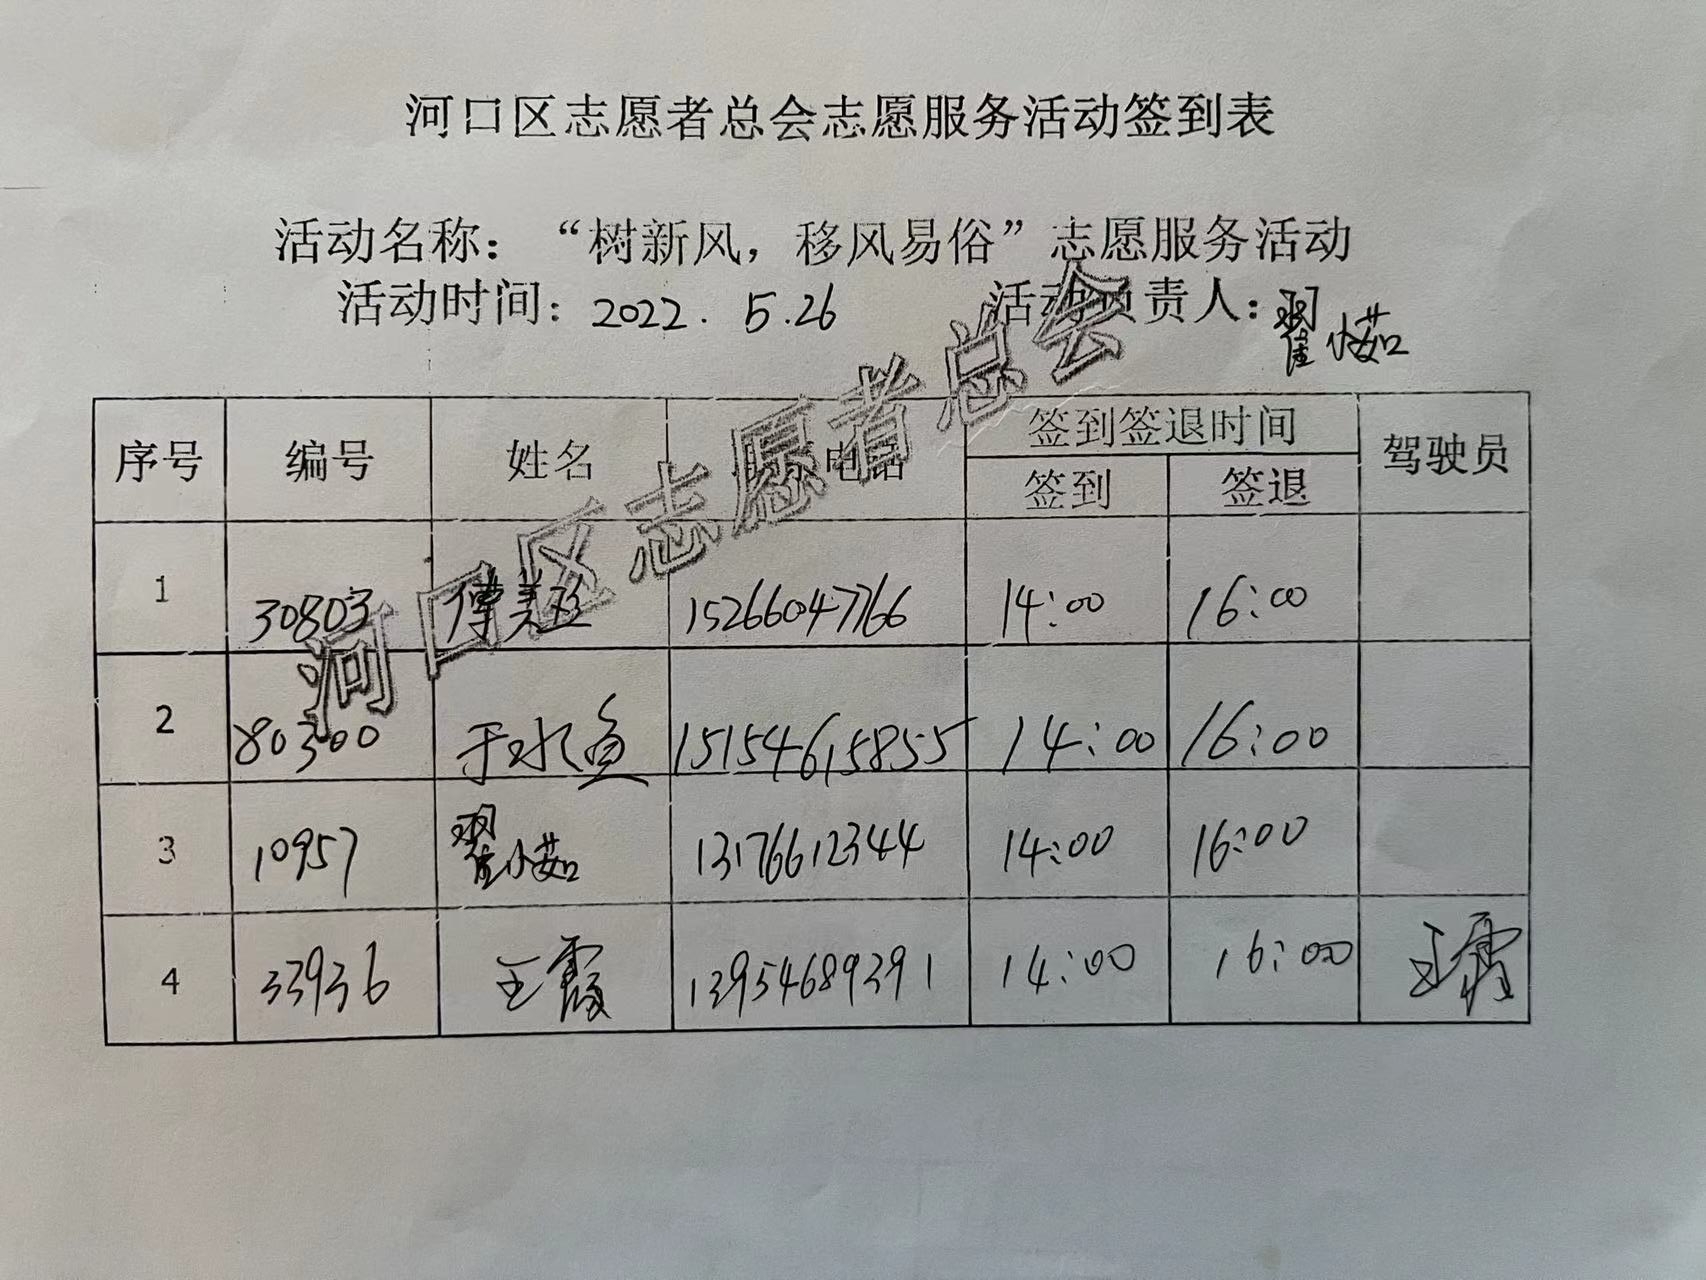 河口区志愿者总会志愿服务活动签到表
活动名称：“树新风，移风易俗”志愿服务活动
活动时间：2022.5.26 活动负责人：翟小茹
河口区志愿者总会
序号 编号 姓名 联系电话 签到签退时间 驾驶员
签到 签退
1 30803 傅美 15266047766 14:00 16:00
2 80300 于水 15154615855 14:00 16:00
3 10957 翟小茹 13176612344 14:00 16:00
4 33936 王霞 13954689391 14:00 16:00 王霞